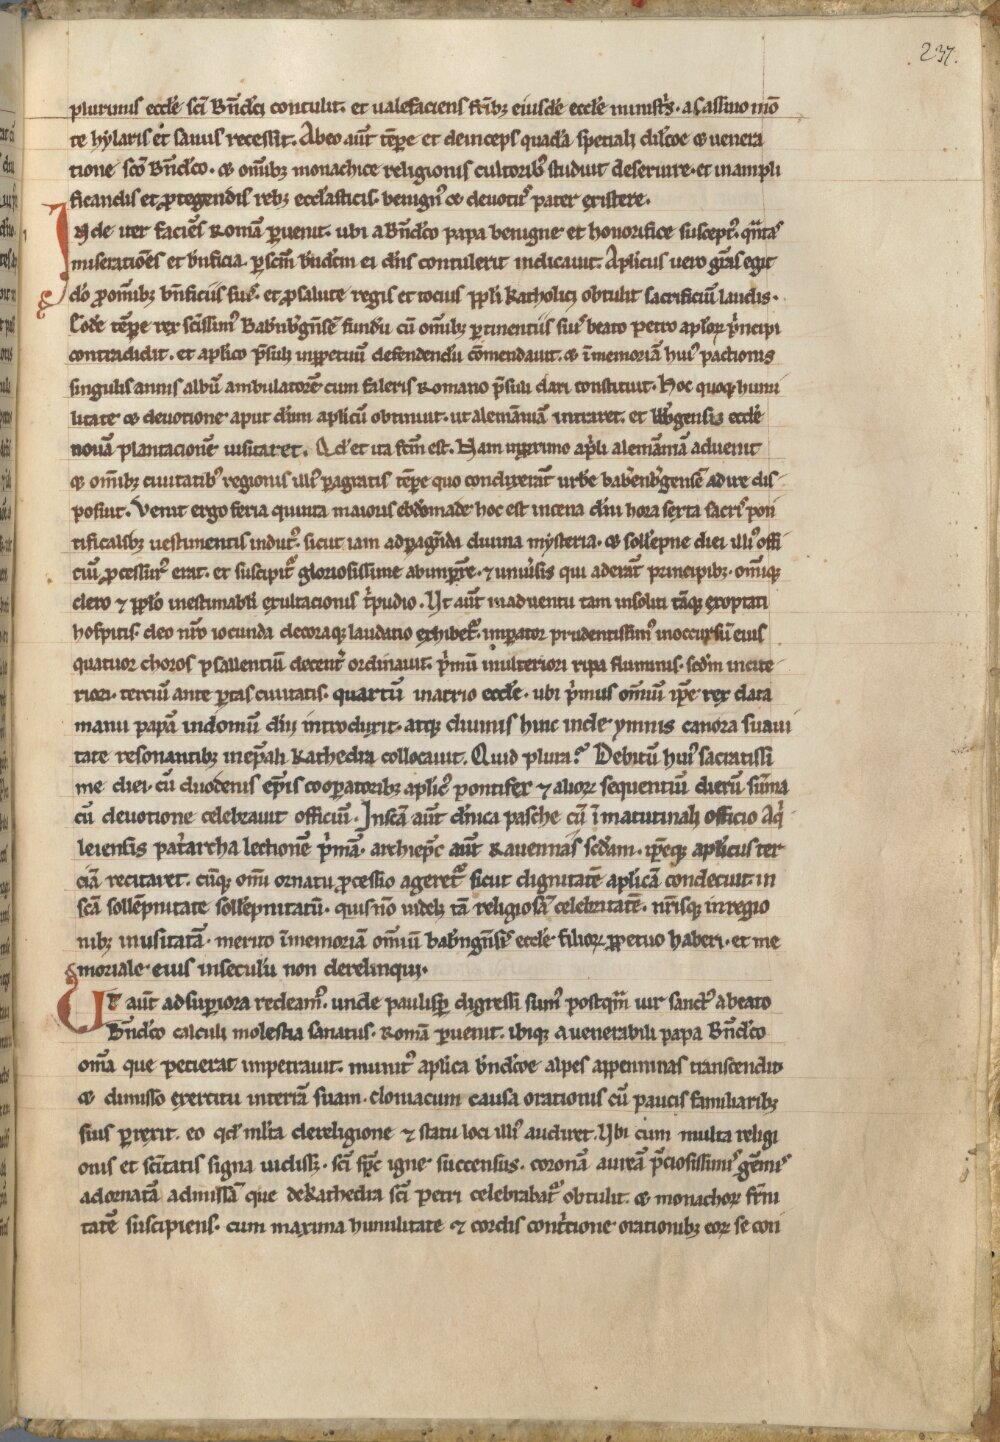 237.
plurimis eccłe sci Bn̄dicti contulit. et ualefaciens fr̄ibꝫ eiusdē eccłe ministris. a Cassino mō
te hylaris et sanus recessit. Ab eo aut̄ tēpore et deinceps quadā speciali dilc̄oe & uenera
tione sc̄o Bn̄dicto. & om̄ibꝫ monachice religionis cultoribꝰ studuit deseruire. et in ampli
ficandis et ꝓtegendis rebꝫ ecclesiasticis. benignꝰ ac deuotꝰ pater existere.
Inde iter faciēs Romā ꝑuenit. ubi a Bn̄dicto papa benigne et honorifice susceptꝰ. quantas
miserationēs et bn̄ficia. ꝑ scm̄ Bn̄dictm ei dn̄s contulerit indicauit. Aplicus uero grās egit
dō ꝓ om̄ibꝫ bn̄ficiis suis. et ꝓ salute regis et tocius ppl̄i katholici obtulit sacrificiū laudis.
Eodē tēpore rex sc̄issimꝰ Babn̄bgensē fundū cū om̄ibꝫ ꝑtinentiis suis beato petro aplorꝝ p̄ncipi
contradidit. et aplico p̄suli in ꝑpetuū defendendū cōmendauit. & ī memoriā huiꝰ pactionis
singulis annis albū ambulatorē cum faleris Romano p̄suli dari constituit. Hoc quoqꝫ humi
litate & devotione aput dn̄m aplicū obtinuit. ut alemāniā intraret. et bbꝰgensis eccłe
nouā plantacionē uisitaret. Qd̄ et ita fc̄m est. Nam in primo apl̄i alemāniā aduenit
& om̄ibꝫ ciuitatibꝰ regionis illiꝰ ꝑagratis tēpore quo condixerat urbē babenbgensē adire dis-
posuit. Venit ergo feria quinta maioris ebdomade hoc est in cena dn̄i hora sexta sacris pon
tificalibꝫ uestimentis indutꝰ. sicut iam ad ꝑagenda diuina mysteria. & sollēpne diei illiꝰ offi
ciū ꝓcessurꝰ erat. et suscipit᷑ gloriosissime ab impr̄e. ⁊ uniūsis qui aderāt principibꝫ. om̄iqꝫ
clero ⁊ ppl̄o inestimabili exultacionis tripudio. Ut aut̄ in aduentu tam insoliti tāqꝫ exoptati
hospitis. deo nr̄o iocunda decoraqꝫ laudatio exhibet᷑. imperator prudentissimꝰ in occursū eius
quatuor choros psallentiū decent᷑ ordinauit. p̄mū in ulteriori ripa fluminis. scdm̄ in cite-
riori. terciū ante portas ciuitatis. quartū in atrio eccłe. ubi p̄mus om̄iū ipse rex data
manu papā in domū dn̄i introduxit. atqꝫ diuinis hinc inde ymnis canora suaui
tate resonantibꝫ in ep̄ali kathedra collocauit. Quid plura? Debitū huiꝰ sacratissi
me diei. cū duodenis ep̄is cooꝑatoribꝫ aplicꝰ pontifex ⁊ aliorꝝ sequentiū dierū sūma
cū deuotione celebrauit officiū. In sca aut̄ dn̄ica pasche cū ī matutinali officio Aqͥ
leiensis patᷓarcha lectionē p̄mā. archiep̄c aut̄ Rauennas scd̄am. ipseqꝫ aplicus ter
ciā recitaret. cūqꝫ omi ornatu ꝓcessio ageret᷑ sicut dignitatē aplicā condecuit. in
scā sollēpnitate sollēpnitatū. quis nō uideb tā religiosā celebritatē. nr̄isqꝫ in regio
nibꝫ inusitatā. merito ī memoriā om̄iū babn̄gensis eccłe filiorꝝ ꝑpetuo haberi. et me
moriale eius in seculū non derelinqui.
Ut aut̄ ad suꝑiora redeamꝰ. unde paulisꝑ digressi sumꝰ postqm̄ uir sanctꝰ a beato
Bn̄dicto calculi molestia sanatus. Romā ꝑuenit. ibiqꝫ a uenerabili papa Bn̄dicto
oma que petierat impetrauit. munitꝰ aplica bn̄dictōe alpes appenninas transcendit.
& dimisso exercitu interiā suam. cloniacum causa orationis cū paucis familiaribꝫ
suis ꝑrexit. eo qd̄ ml̄ta de religione ⁊ statu loci illiꝰ audiret. Ubi cum multa religi
onis et scītatis signa uidissꝫ. sci spc igne succensus. coronā aureā p̄ciosissimis gēmis
adornatā ad missā que de kathedra sci petri celebrabat᷑ obtulit. & monachorꝝ fr̄ni
tatē suscipiens. cum maxima humilitate ⁊ cordis cont̄tione orationibꝫ eorꝝ se con